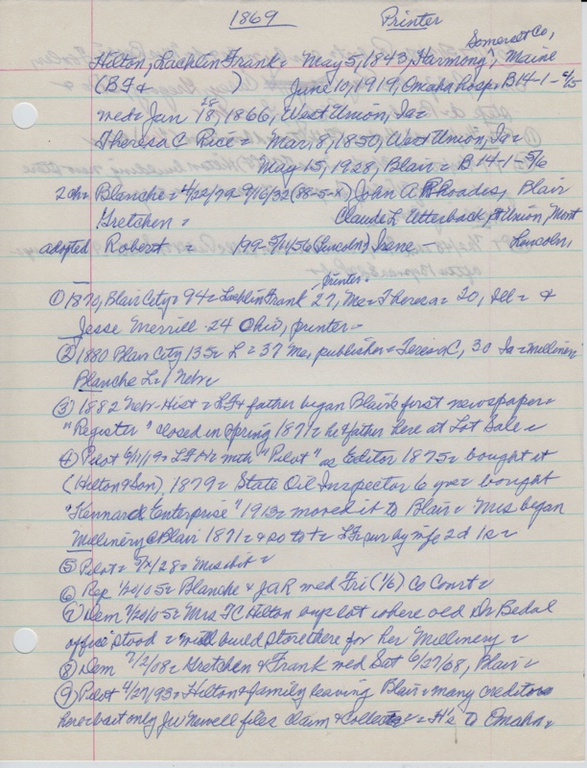 1869 Printer
Hilton, Lachlin Frank = May 5, 1843, Harmony, Somerset Co, Maine
(B.F. & ) June 10, 1919, Omaha hosp = B14-1-
wed = Jan 18, 1866, West Union, Ia =
28
Theresa C Rice = Mar, 8, 1850, West Union, Ia =
May 15, 1928, Blair = B 14-1-5/6
2 ch = Blanche = 4/22/79-9/16/32 (88-5-X) John A Rhoades, Blair
Gretchen = Claude L Utterback, Mont
adopted Robert = (Lincoln) Irene - Lincoln,
① 1870, Blair City = 94 = Lachlin Frank 27, Me = Theresa = 20, Ill = &
printer =
Jesse Merrill - 24 Ohio, printer =
② 1880 Blair City 135 = L = 37 Me, publisher = C, 30 Ia = milliner
Blanche L = 1 Nebr
③ 1882 Nebr-Hist = LF & father began Blair's first newspaper =
"Register" closed in Spring 1871 = he & father here at Lot Sale =
④ Pilot 6/11/19 = LFH = "Pilot" as Editor 1875 = bought it
(Hilton & Son) 1879 = State Oil Inspector 6 yrs = bought
"Kennard Enterprise" 1913 = moved it to Blair = Mrs began
Millinery @ Blair 1871 = LF sur by wife 2d 1s =
⑤ Pilot = 5/X/28 = Mrs obit =
⑥ Rep 1/20/05 = Blanche & JaR wed Fri (1/6) Co Court =
⑦ Dem 1/20/05 = Mrs TC Hilton buys lot where old Dr Bedal
office stood = will build store there for her Millinery =
⑧ Dem 7/2/08 = Gretchen & Frank wed Sat 6/27/08, Blair =
⑨ Pilot 4/27/93 = Hilton & family leaving Blair = many creditors
here = but only JW Newell files claim & collects = H's to Omaha =